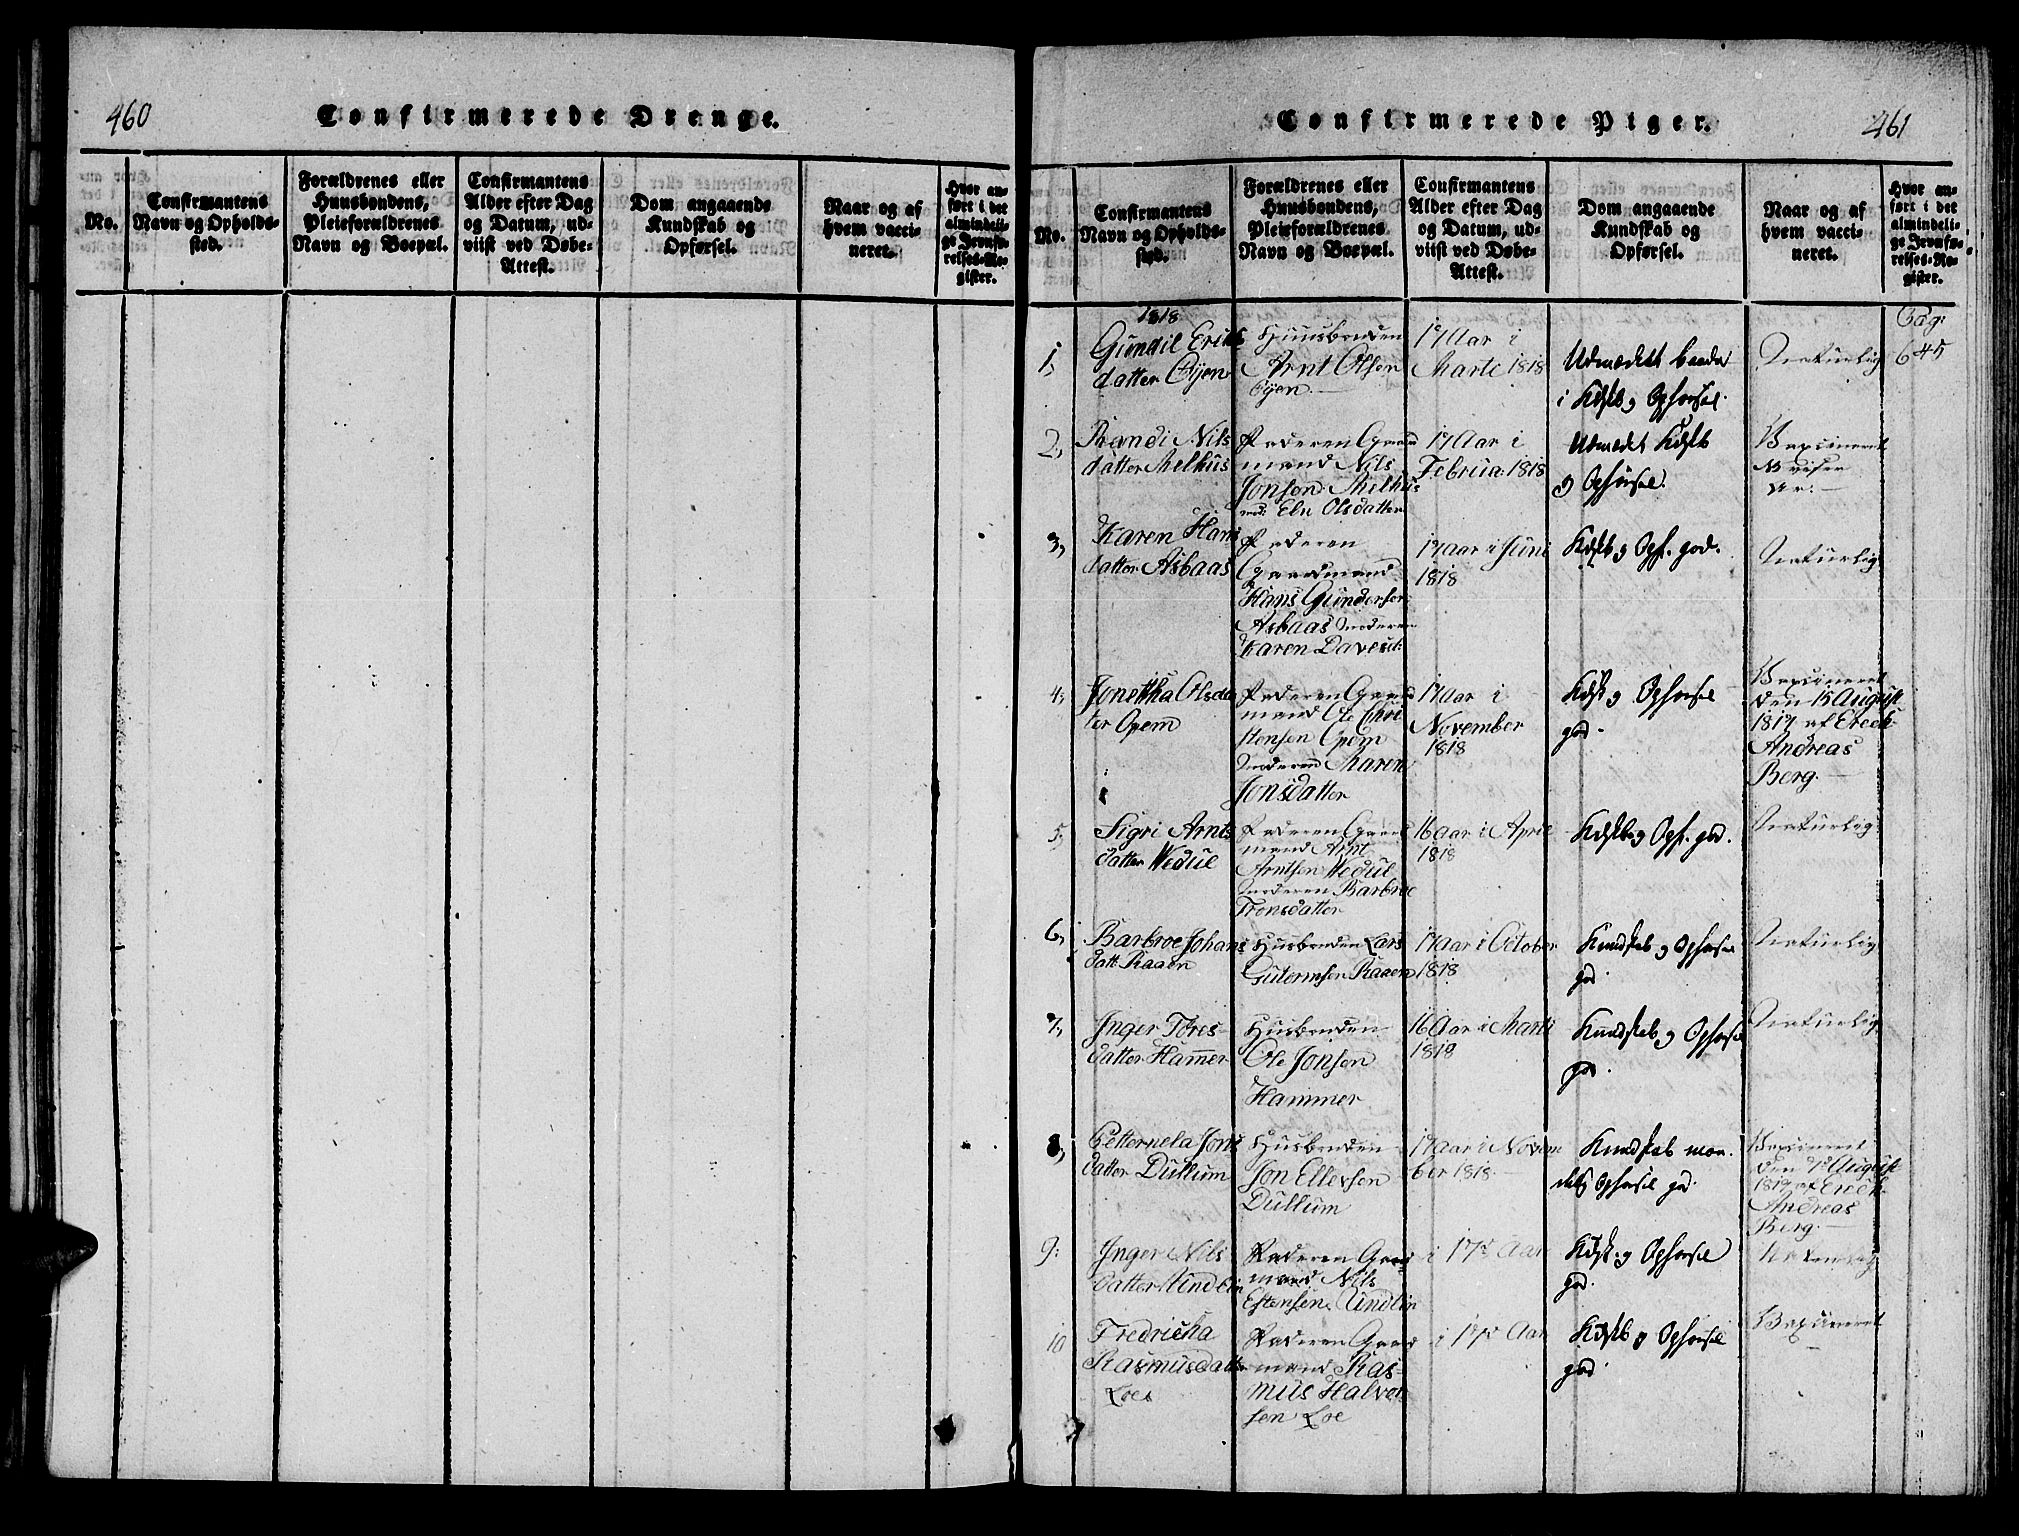 460
Confirmerede Drenge.
No.
Confirmantens
Navn og Opholds-
sted.
Forældrenes eller
Huusbondens,
Pleieforældrenes
Navn og Boepæl.
Confirmantens
Alder efter Dag
og Datum, ud-
viist ved Døbe-
Attest.
Dom angaaende
Kundskab og
Opførsel.
Naar og af
hvem vacci-
neret.
Hvor an-
ført i det
almindeli-
ge Jevnfø-
relses-Re-
gister.
Confirmerede Piger.
461
No.
Confirmantens
Navn og Opholds-
sted.
Forældrenes eller
Huusbondens,
Pleieforældrenes
Navn og Boepæl.
Confirmantens
Alder efter Dag
og Datum, ud-
viist ved Døbe-
Attest.
Dom angaaende
Kundskab og
Opførsel.
Naar og af
hvem vacci-
neret.
Hvor an-
ført i det
almindeli-
ge Jevnfø-
relses-Re-
gister.
1818
1,
Gundil Erichs
datter Øyen
Huusbonden
Arnt Olsen
Øyen
17 Aar i
Marti 1818
Udmærket baade
i Kdskb og Opførsel.
Naturlig
Pag:
645
2,
Randi Nils
datter Melhus
Faderen Gaard
mand Nils
Jonsen Melhus
mod: Eln Olsdatter
17 Aar i
Februa: 1818
Udmærket Kdskb
og Opførsel.
Vaxineret
3,
Karen Hans
datter Asbaas
Faderen
Gaardmand
Hans Gundersen
Asbaas Moderen
Karen
17 aar i Juni
1818
Kdskb og Opf. god.
Naturlig
4,
Jonettha Olsda
ter Opem
Faderen Gaard
mand Ole Chri
stensen Opem
Moderen Maren
Jonsdatter
17 Aar i
November
1818
Kdsk og Opførsel
god.
Vaxineret
den 15 August
1817 af Ereck
Andreas
Berg.
5,
Sigri Arnts
datter Wedul
Faderen Gaard
mand Arnt
Arntsen Wedul
Moderen Barbroe
Tronsdatter
16 Aar i April
1818
Kdskb og Opf. god.
Naturlig
6,
Barbroe Johans
datt Raaen
Husbonden Lars
Gutormsen Raaen
17 Aar i October
1818
Kundskab og Opførsel
god
Naturlig
7,
Inger Tores-
datter Hamer
Husbonden
Ole Jonsen
Hammer
16 Aar i Marti
1818
Kundskab og Opførsel
god.
Naturlig
8,
Petternela Jons
datter Dullum
Husbonden
Jon Ellevsen
Dullum
17 Aar i Novem
ber 1818
Kundskab maa
delig Opførsel god.
Vaxineret
den 7de August
1817 af Ereck
Andreas
Berg.
9:
Inger Nils
datter Undlin
Faderen Gaard
mand Nils
Estensen Undlin
i 17d Aar
Kdsk: og Opførsel
god.
Naturlig
10
Fredricha
Rasmusdatter
Loe
Faderen Gaard
mand Ras-
mus Halvor
sen Loe
i 17d Aar
Kdskb og Opførsel
god
Vaxineret